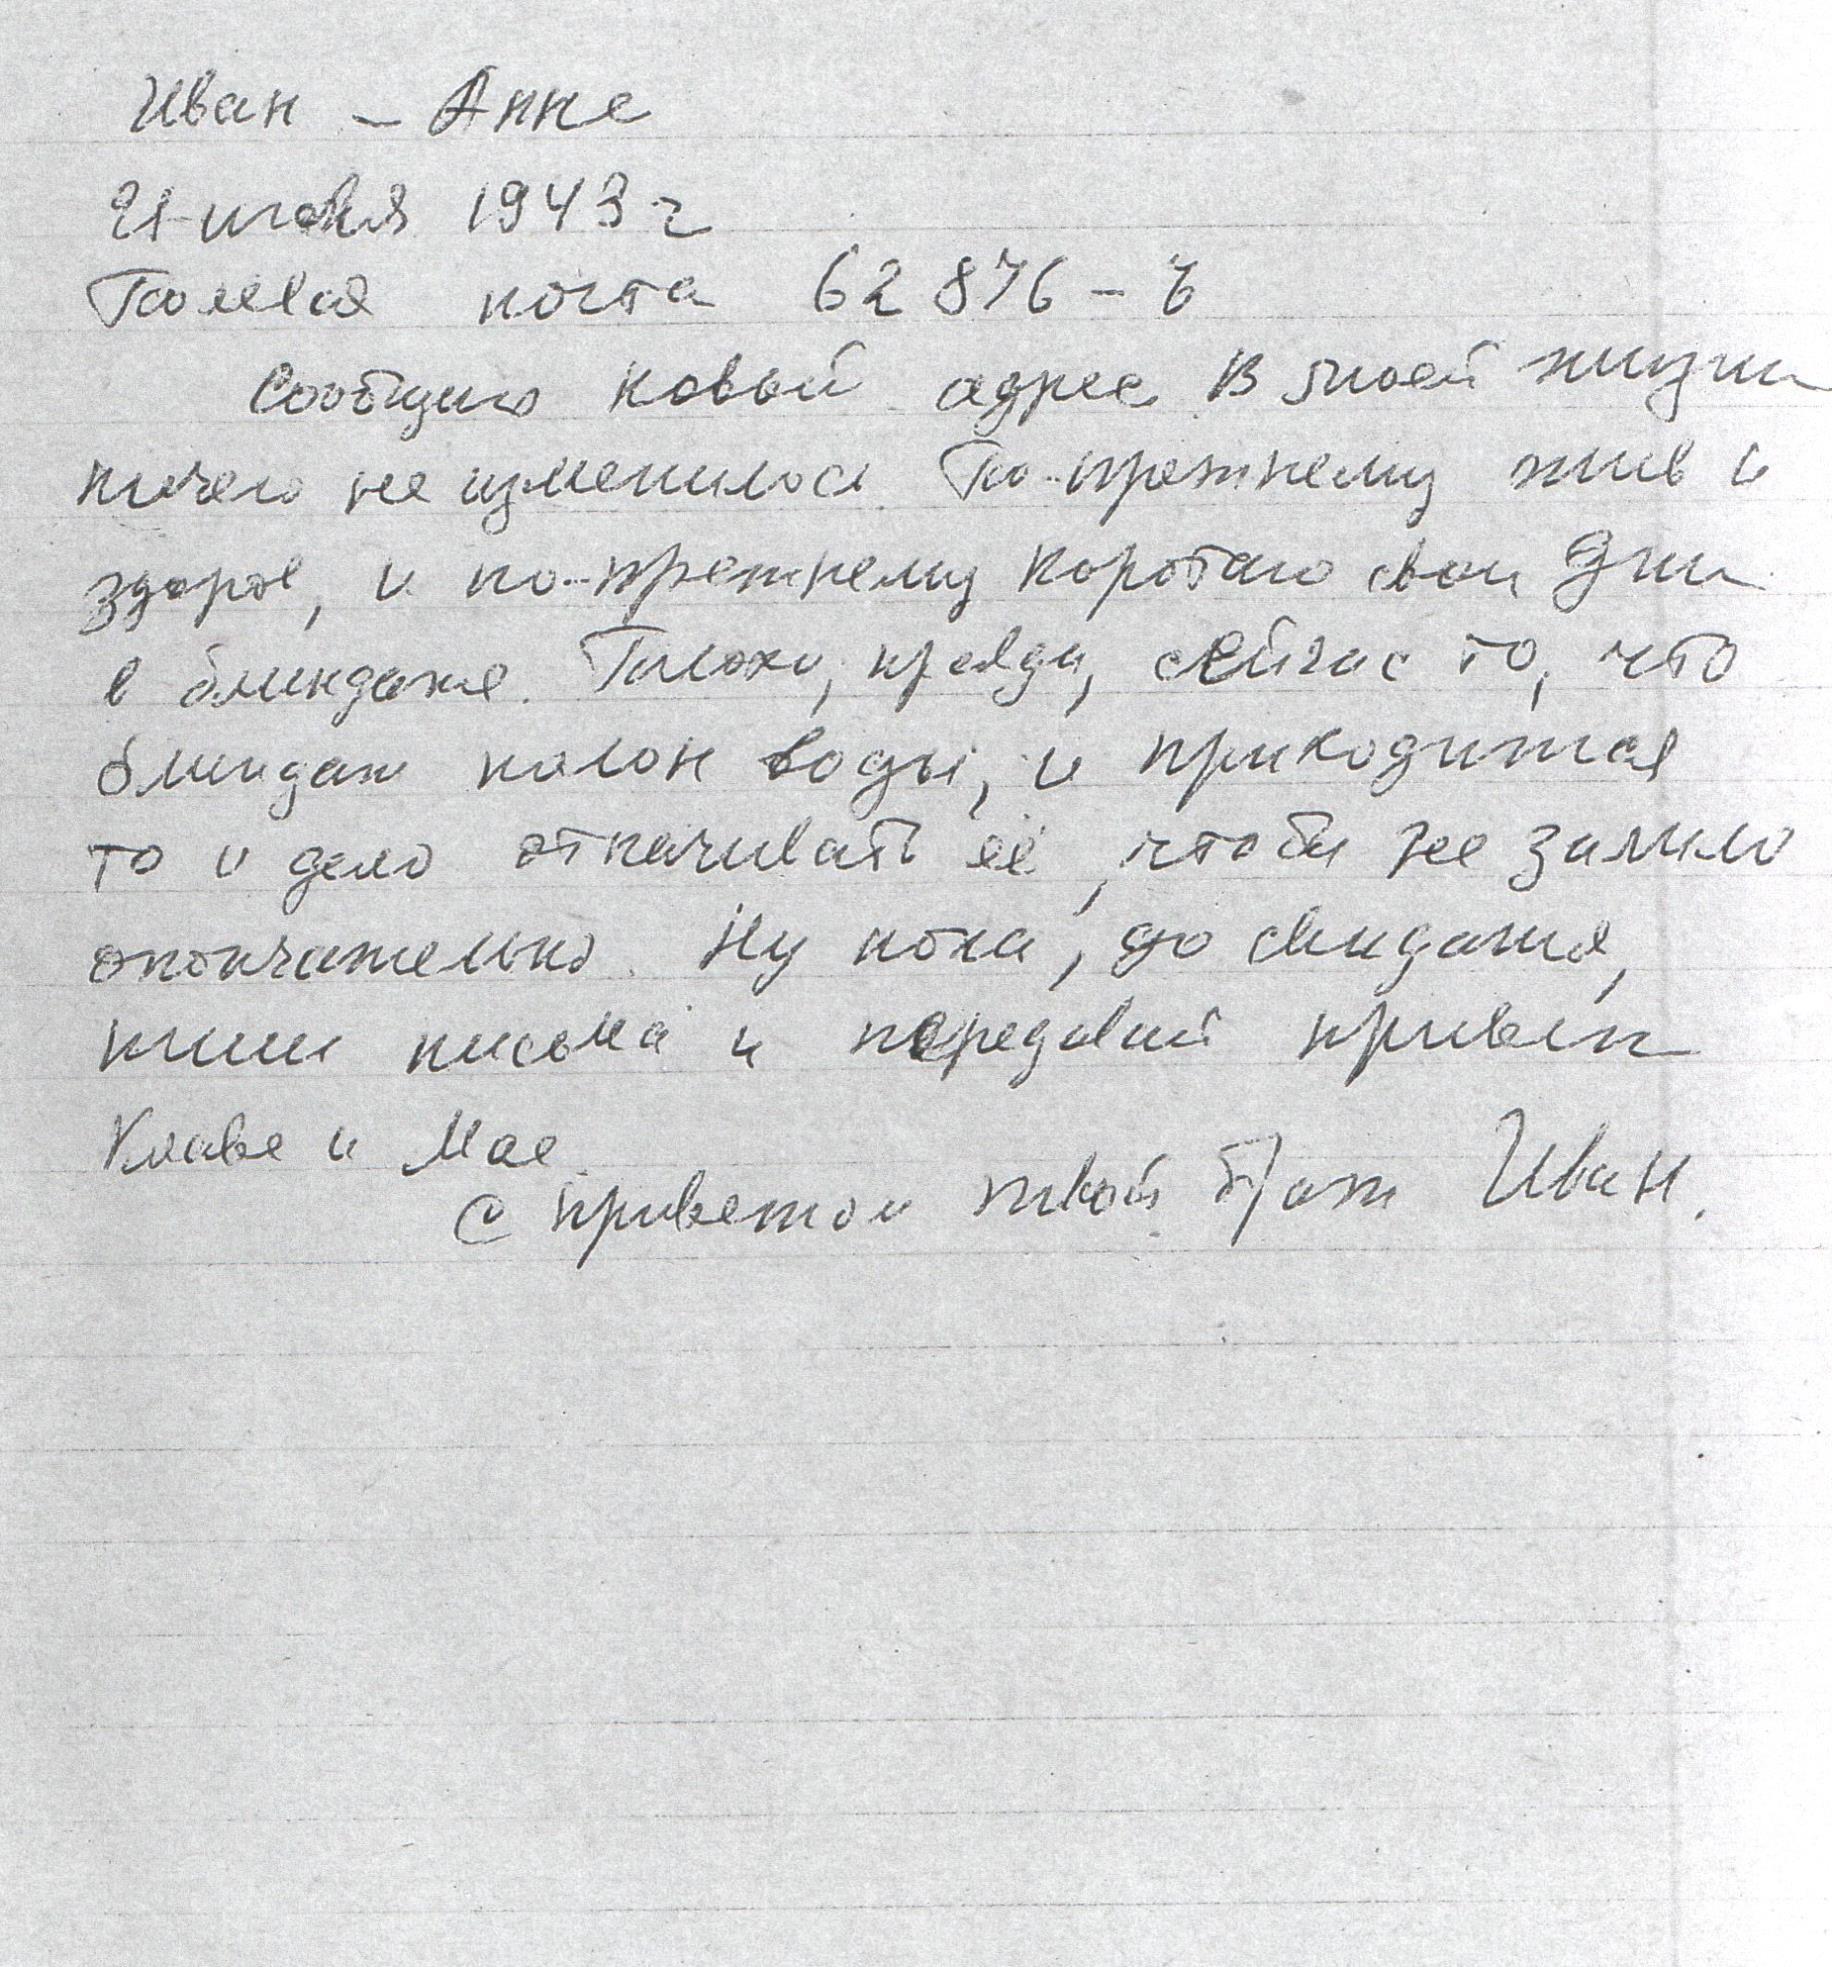 Иван – Анне
21 июля 1943 г
Полевая почта 62876 –
Сообщаю новый адрес. В моей жизни
ничего не изменилось. По-прежнему жив и
здоров, и по-прежнему коротаю свои дни
в блиндаже. Плохо, правда, сейчас то, что
блиндаж полон воды, и приходится
то и дело откачивать её, чтобы не залило
окончательно. Ну пока, до свидания,
пиши письма и передавай привет
Клаве и Мае.
С приветом твой брат Иван.